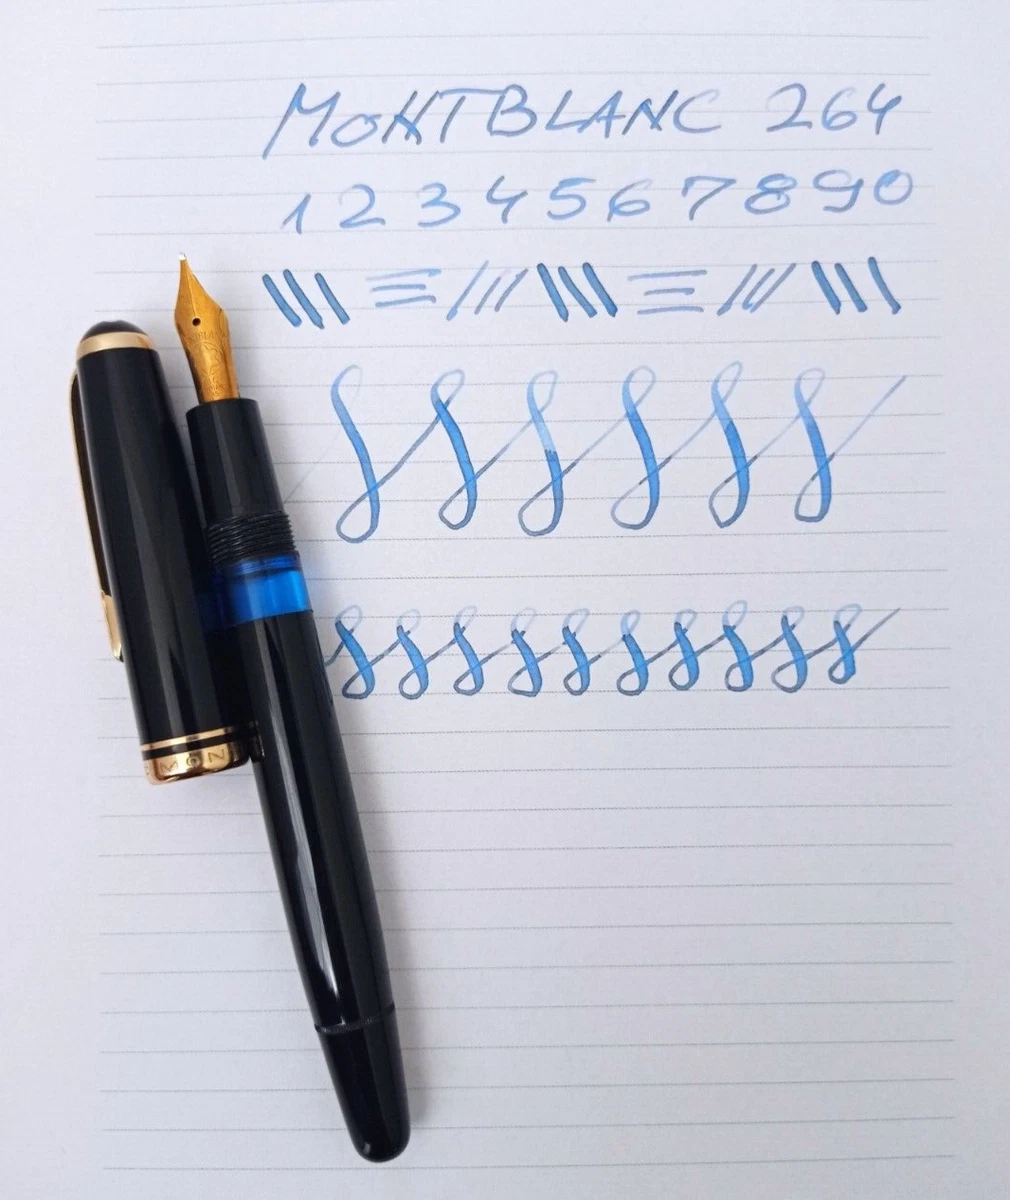 MONTBLANC 264
1 2 3 4 5 6 7 8 9 0
MON